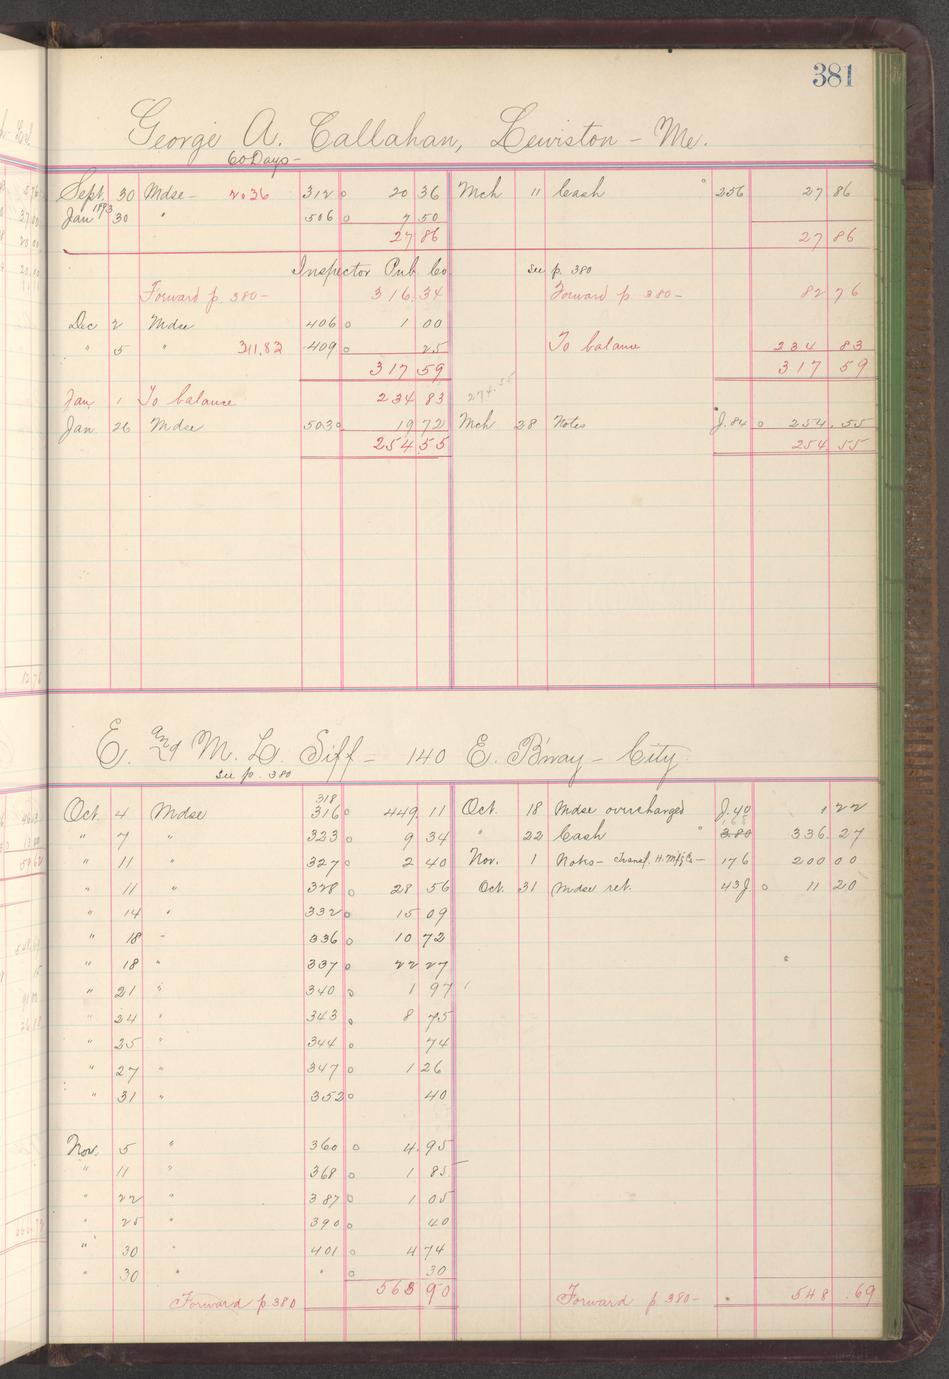 381
George A. Callahan, Lewiston - Me.
60 Days -
Sept. 30 Mdse - 2036 312 0 20 36 Mch 11 Cash 256 27 86
Jan 1893 30 " 506 0 7 50
27 86 27 86
Inspector Pub Co. See p. 380
Forward p. 380 - 316.34 Forward p. 380 - 82 76
Dec 2 Mdse 406 0 1 00
" 5 " 311.83 409 0 25 To balance 234 83
317 59 317 59
Jan. 1 To balance 234 83
Jan. 26 Mdse 503 0 19 72 Mch 28 Notes J. 84 0 254.55
254 55 254 55
E. and M. L. Siff - 140 E. B'way - City
See p. 380
318
Oct. 4 Mdse 316 0 449.11 Oct. 18 Mdse overcharged J. 40 1 22
" 7 " 323 0 9 34 " 22 Cash 380 336.27
" 11 " 327 0 2 40 Nov. 1 Notes - Transf. H. Mfg Co - 176 200 00
" 11 " 328 0 28 56 Oct. 31 Mdse ret. 43J 0 11 20
" 14 " 332 0 15 09
" 18 - 336 0 10 72
" 18 " 337 0 22 27
" 21 " 340 0 1 97
" 24 " 343 0 8 75
" 25 " 344 0 74
" 27 " 347 0 1 26
" 31 " 352 0 40
Nov. 5 " 360 0 4.95
" 11 " 368 0 1 85
" 22 " 387 0 1 05
" 25 " 390 0 40
" 30 " 401 0 4 74
" 30 " " 0 30
563 90
Forward p 380 Forward p 380 - 548.69